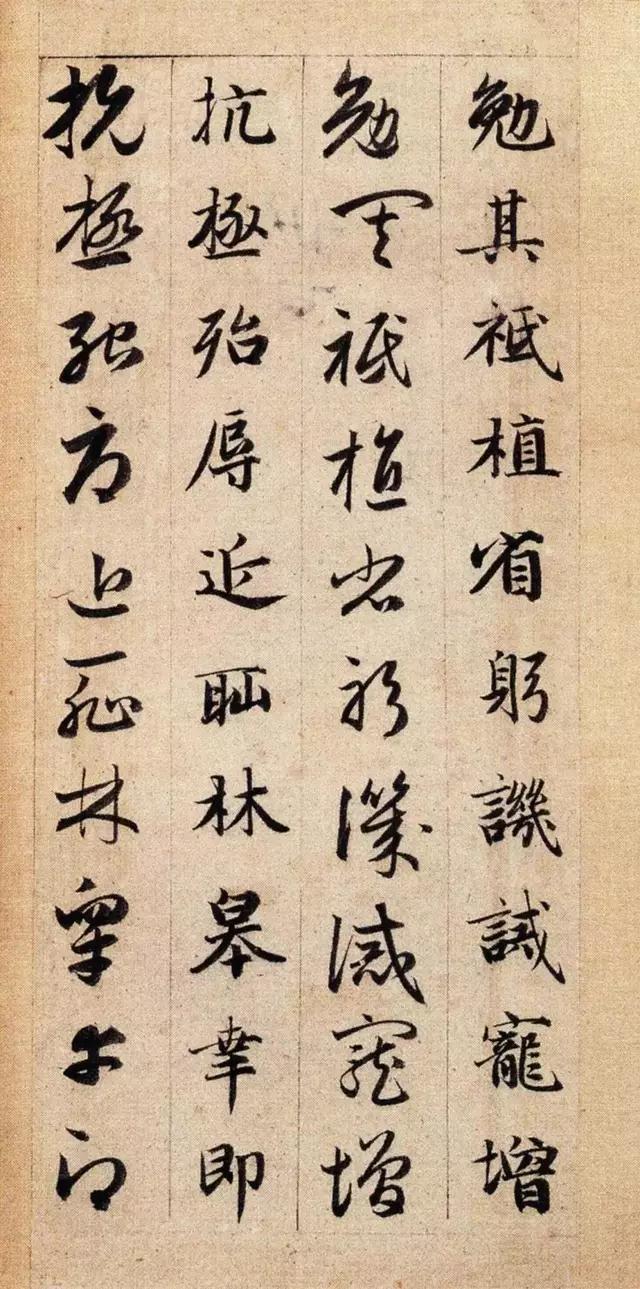 勉其祗植省躬譏誡寵增
勉其祗植省躬譏誡寵增
抗極殆辱近恥林皋幸即
抗極殆辱近恥林皋幸即